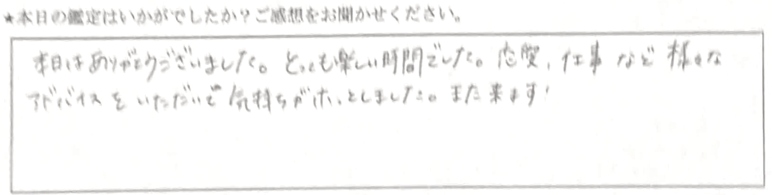 ★本日の鑑定はいかがでしたか？ご感想をお聞かせください。
本日はありがとうございました。とっても楽しい時間でした。恋愛、仕事など様々な
アドバイスをいただいて気持ちがホッとしました。また来ます!